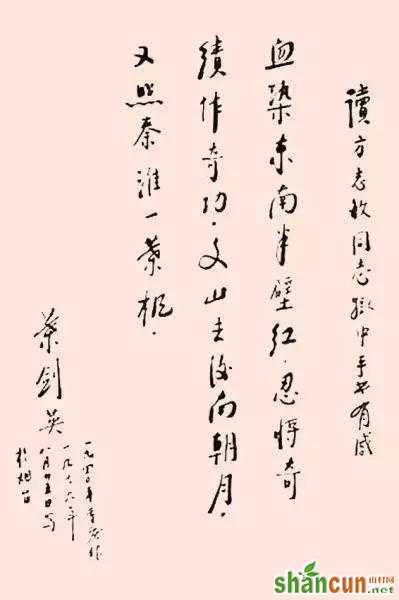 讀方志敏同志獄中手書有感
血染東南半壁紅.忍將奇
績作奇功.文山去後南朝月.
又照秦淮一葉楓.
葉劍英
一九四〇年重慶作
一九六六年
八月廿五日写
於烟台
shancun
山村网
.net